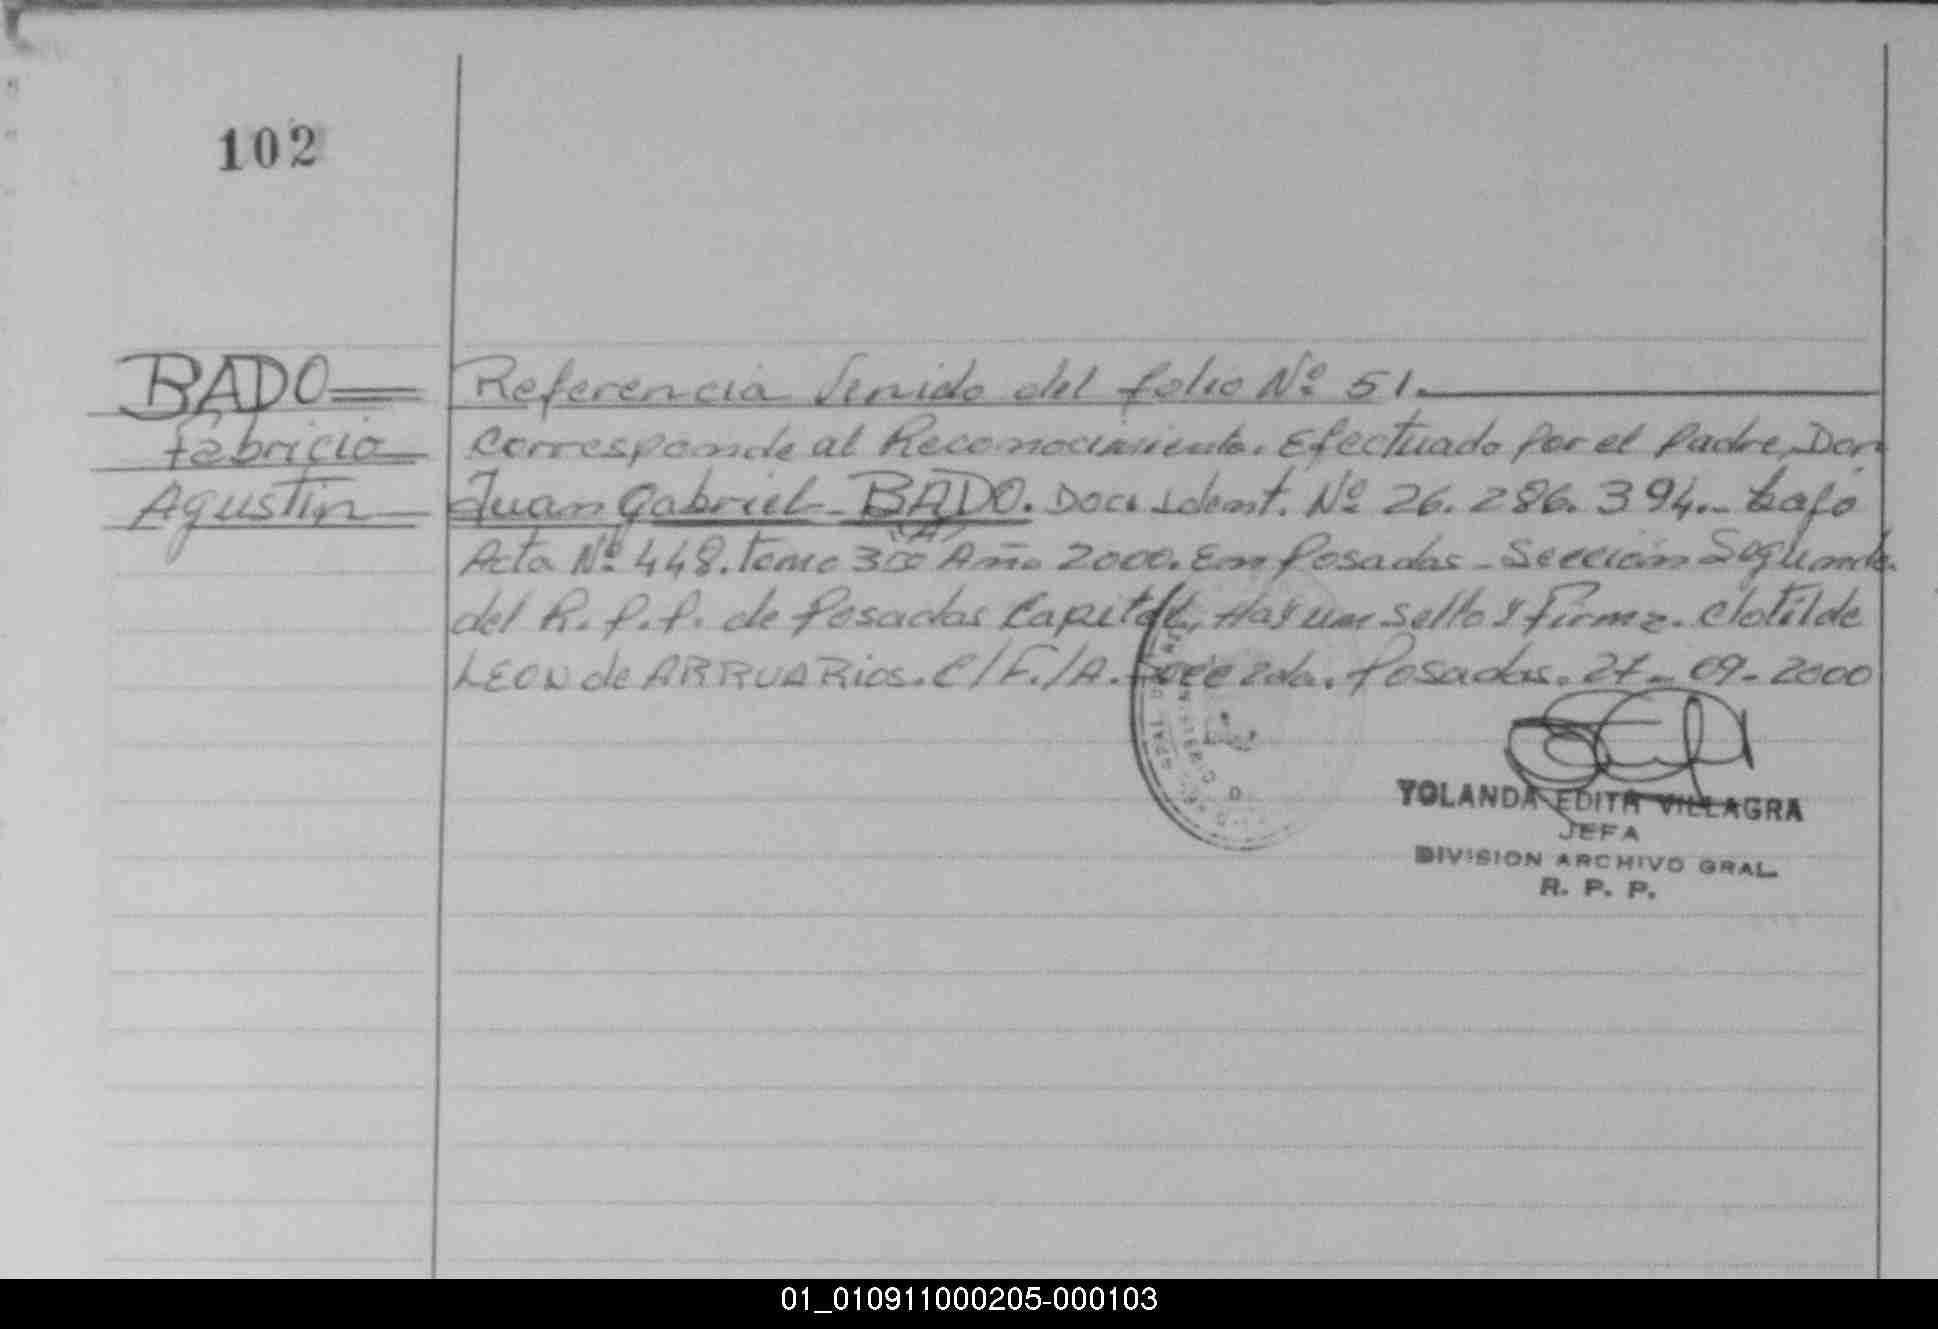 102
BADO
Fabricio
Agustin
Referencia Venido del folio Nº 51.
Corresponde al Reconocimiento. Efectuado por el padre, Don
Juan Gabriel BADO. Doc. Ident. Nº 26.286.394.- bajo
Acta Nº 448. tomo 3º "A" Año 2000. En Posadas - Sección Segunda.
del R.P.P. de Posadas Capital, Hay un sello y Firma. Clotilde
LEON de ARRUARios. C/F./A. 2da. Posadas. 27-09-2000
YOLANDA EDITH VILLAGRA
JEFA
DIVISION ARCHIVO GRAL.
R. P. P.
01_010911000205-000103